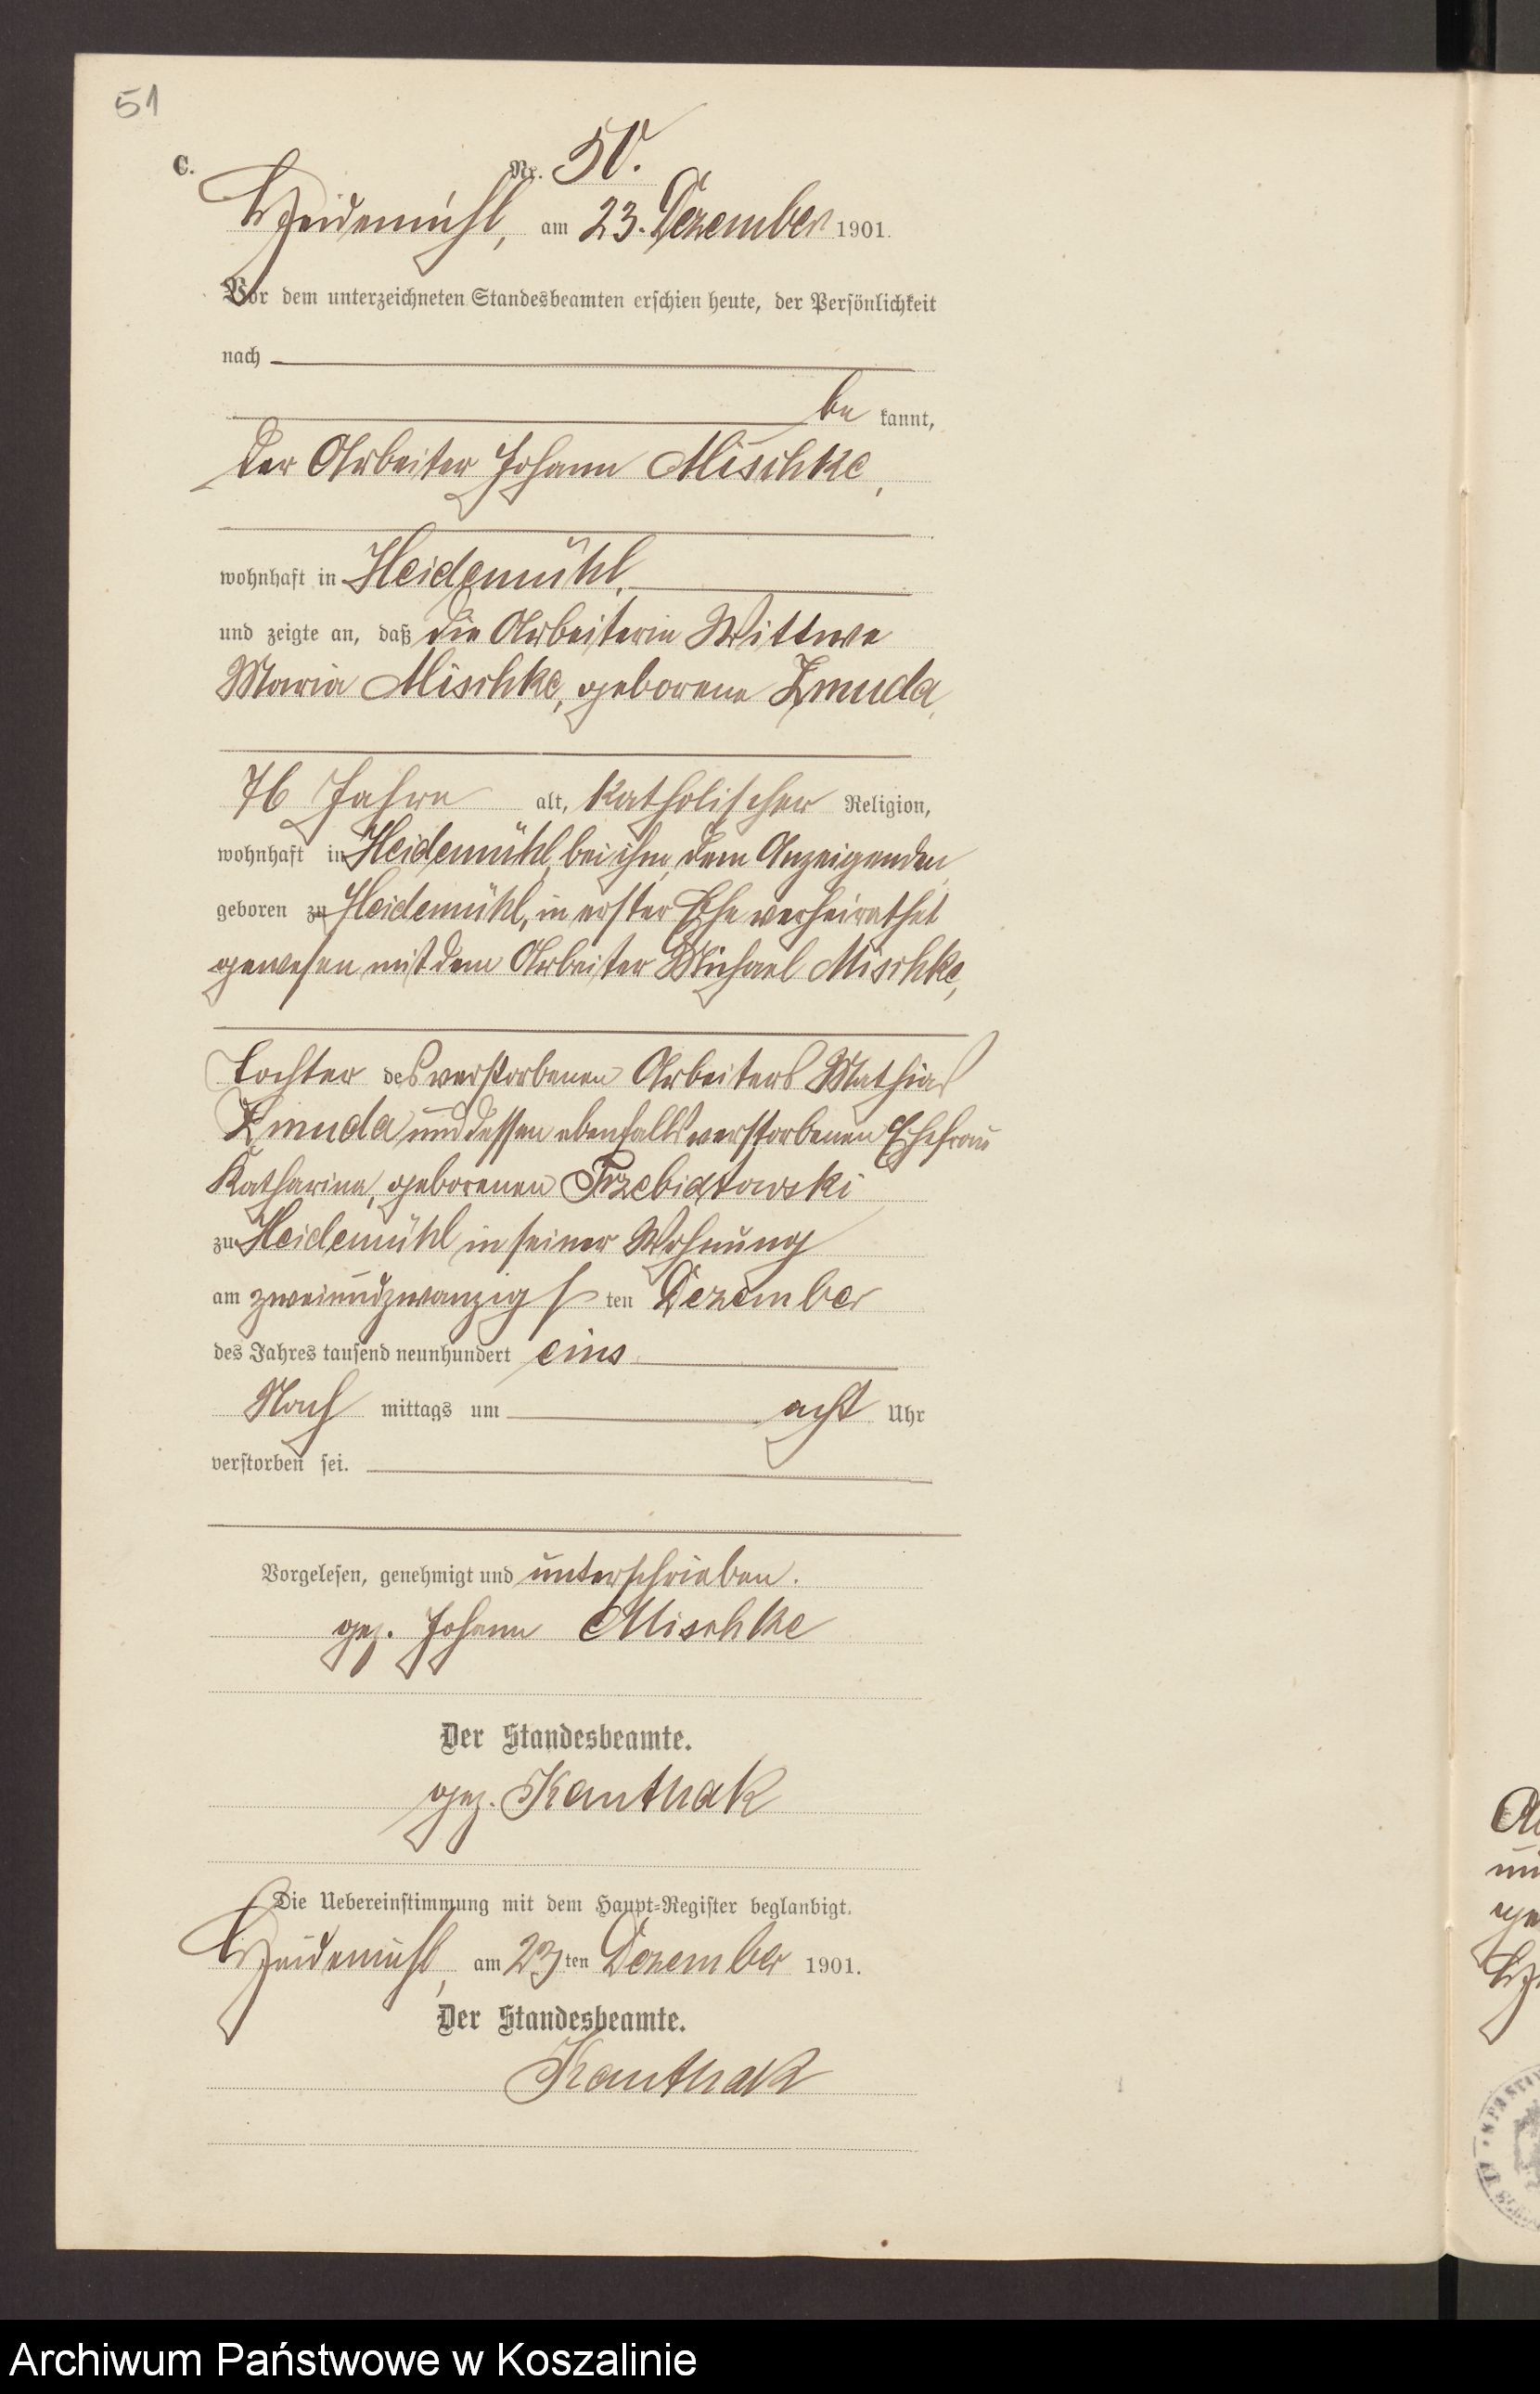 51
C.
Nr. 50.
Heidemühl, am 23. Dezember 1901.
Vor dem unterzeichneten Standesbeamten erschien heute, der Persönlichkeit
nach
be kannt,
der Arbeiter Johann Mischke,
wohnhaft in Heidemühl,
und zeigte an, daß die Arbeiterin Wittwe
Maria Mischke, geborene Zmuda,
76 Jahre alt, katholischer Religion,
wohnhaft in Heidemühl, bei ihm, dem Anzeigenden,
geboren zu Heidemühl, in erster Ehe verheirathet
gewesen mit dem Arbeiter Michael Mischke,
Tochter des verstorbenen Arbeiters Mathias
Zmuda und dessen ebenfalls verstorbenen Ehefrau
Katharina, geborenen Trzebiatowski
zu Heidemühl in seiner Wohnung
am zweiundzwanzigsten Dezember
des Jahres tausend neunhundert eins
Nach mittags um acht Uhr
verstorben sei.
Vorgelesen, genehmigt und unterschrieben.
gez. Johann Mischke
Der Standesbeamte.
gez. Kanthak
Die Uebereinstimmung mit dem Haupt-Register beglaubigt.
Heidemühl, am 23ten Dezember 1901.
Der Standesbeamte.
Kanthak
Archiwum Państwowe w Koszalinie